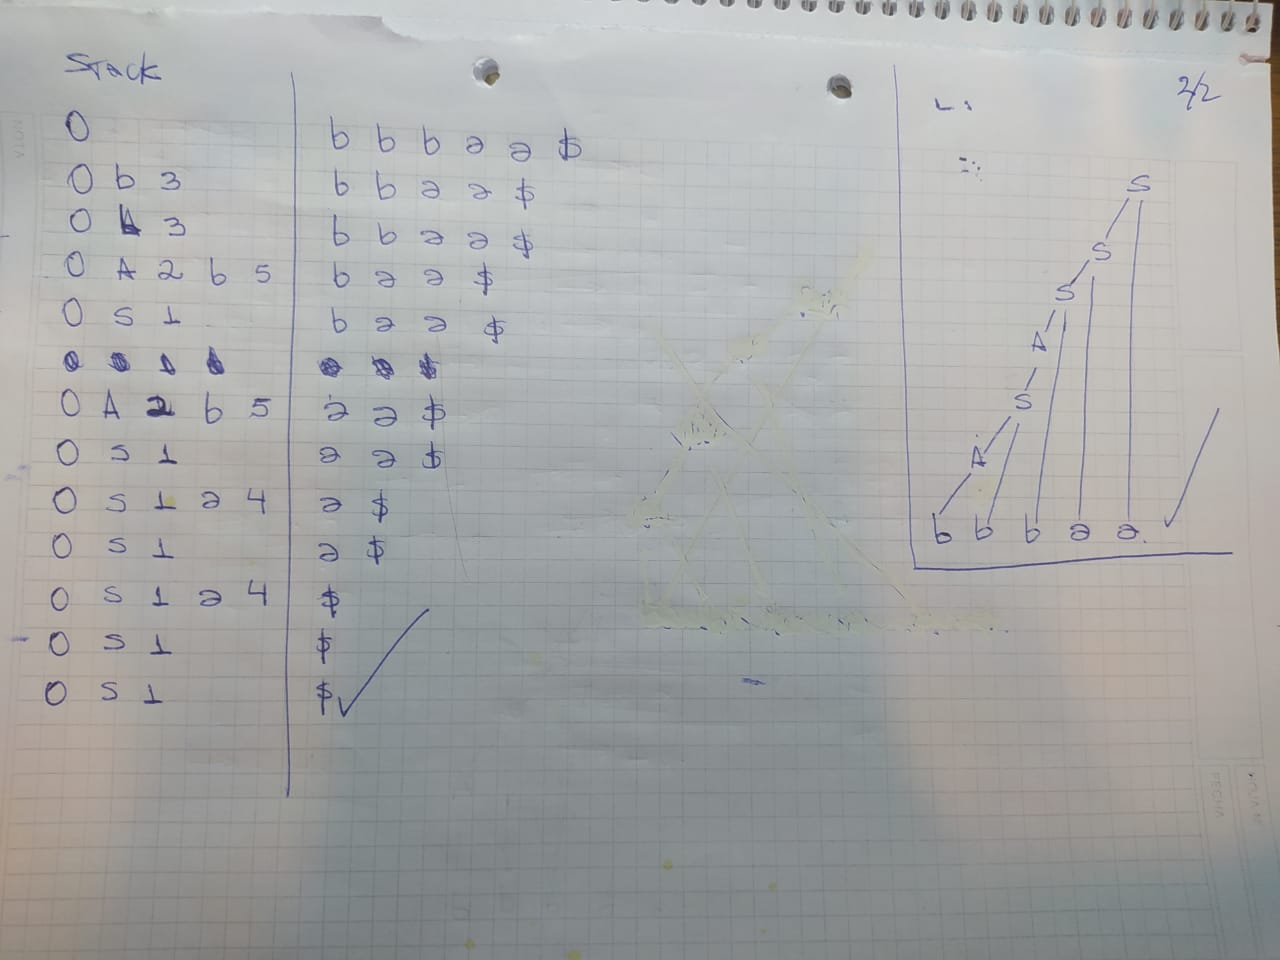 Stack
0 b b b a a $
0 b 3 b b a a $
0 A 3 b b a a $
0 A 2 b 5 b a a $
0 S 1 b a a $
0 A 2 b 5 a a $
0 S 1 a a $
0 S 1 a 4 a $
0 S 1 a $
0 S 1 a 4 $
0 S 1 $
0 S 1 $
2/2
S
S
S
A
S
A
b b b a a
NOTA
FECHA